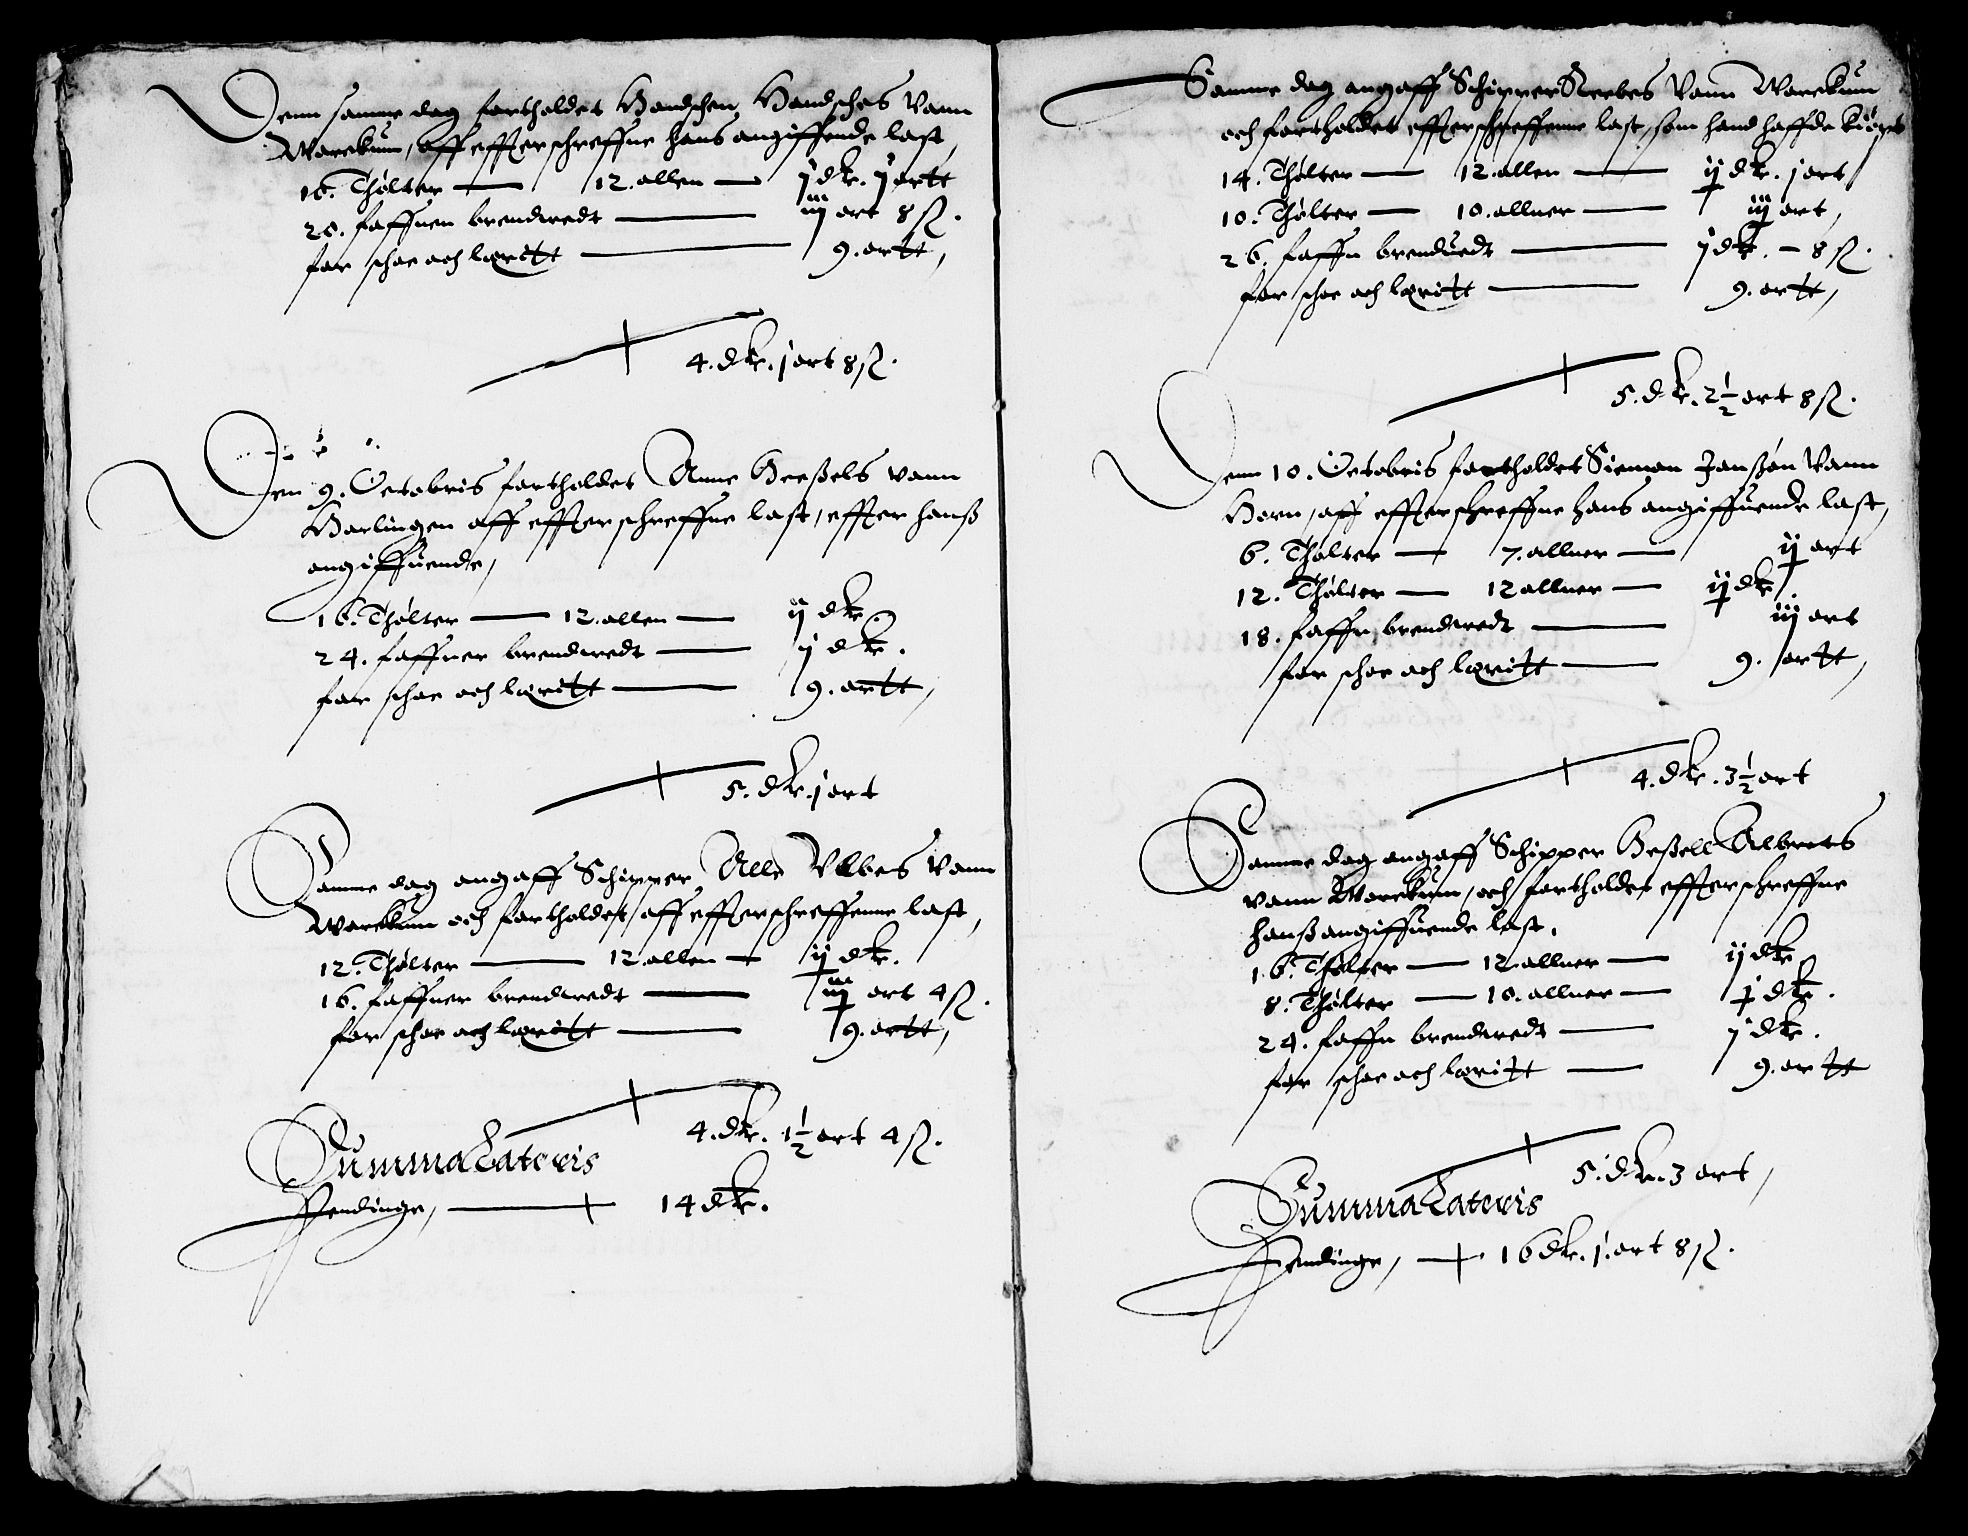 Denn samme dag fortholdet Handschen Handsches vann
Warckum, aff effterschreffne hans angiffende last,
16. Thølter — 12. allen — j dlr. j ortt
20. faffnen brendwedt — iij ort 8 ß.
for schoe och loeritt — 9. ortt,
4. dlr. j ort 8 ß.
Den 9. Octobris fortholdet Anne Heeßels vann
Harlingen aff effterschreffne last, effter hanß
angiffuende,
16. Thølter — 12. allen — ij dlr.
24. faffner brendwedt — j dlr.
for schoe och loeritt — 9. ortt,
5. dlr. j ort
Samme dag angaff Schipper Alle Ulbes vann
Warckum och fortholdet, aff effterschreffenne last,
12. Thølter — 12. allen — ij dlr.
16. faffner brendwedt — iij ort 4 ß.
for schoe och loeritt — 9. ortt,
4. dlr. 1½ ort 4 ß.
Summa Lateris
Pendinge, — 14 dlr.
Samme dag angaff Schipper Reebes vann Warckum
och fortholdet effterschreffenne last, som hand haffde kiøpt
14. Thølter — 12. allen — ij dlr. j ort
10. Thølter — 10. allner — iij ort,
26. faffn brenduedt — j dlr. – 8 ß.
for schoe och loeritt — 9. ortt,
5. dlr. 2½ ort 8 ß.
Denn 10. Octobris fortholdet Siemon Janßøn vann
Horn, aff effterschreffne hans angiffuende last,
6. Thølter — 7. allner — ij ort
12. Thølter — 12 allner — ij dlr.
18. faffn brendwedt — iij ort
for schoe och loeritt — 9. ortt,
4. dlr. 3½ ort
Samme dag angaff Schipper Heßell Albretts
vann Warckum, och fortholdet effterschreffne
hanß angiffuende last.
16. Thølter — 12. allner — ij dlr
8. Thølter — 10. allner — j dlr.
24. faffn brendwedt — j dlr.
for schoe och loeritt — 9. ortt
5. dlr. 3 ort,
Summa Lateris
Pendinge, — 16 dlr. j. ort 8 ß.